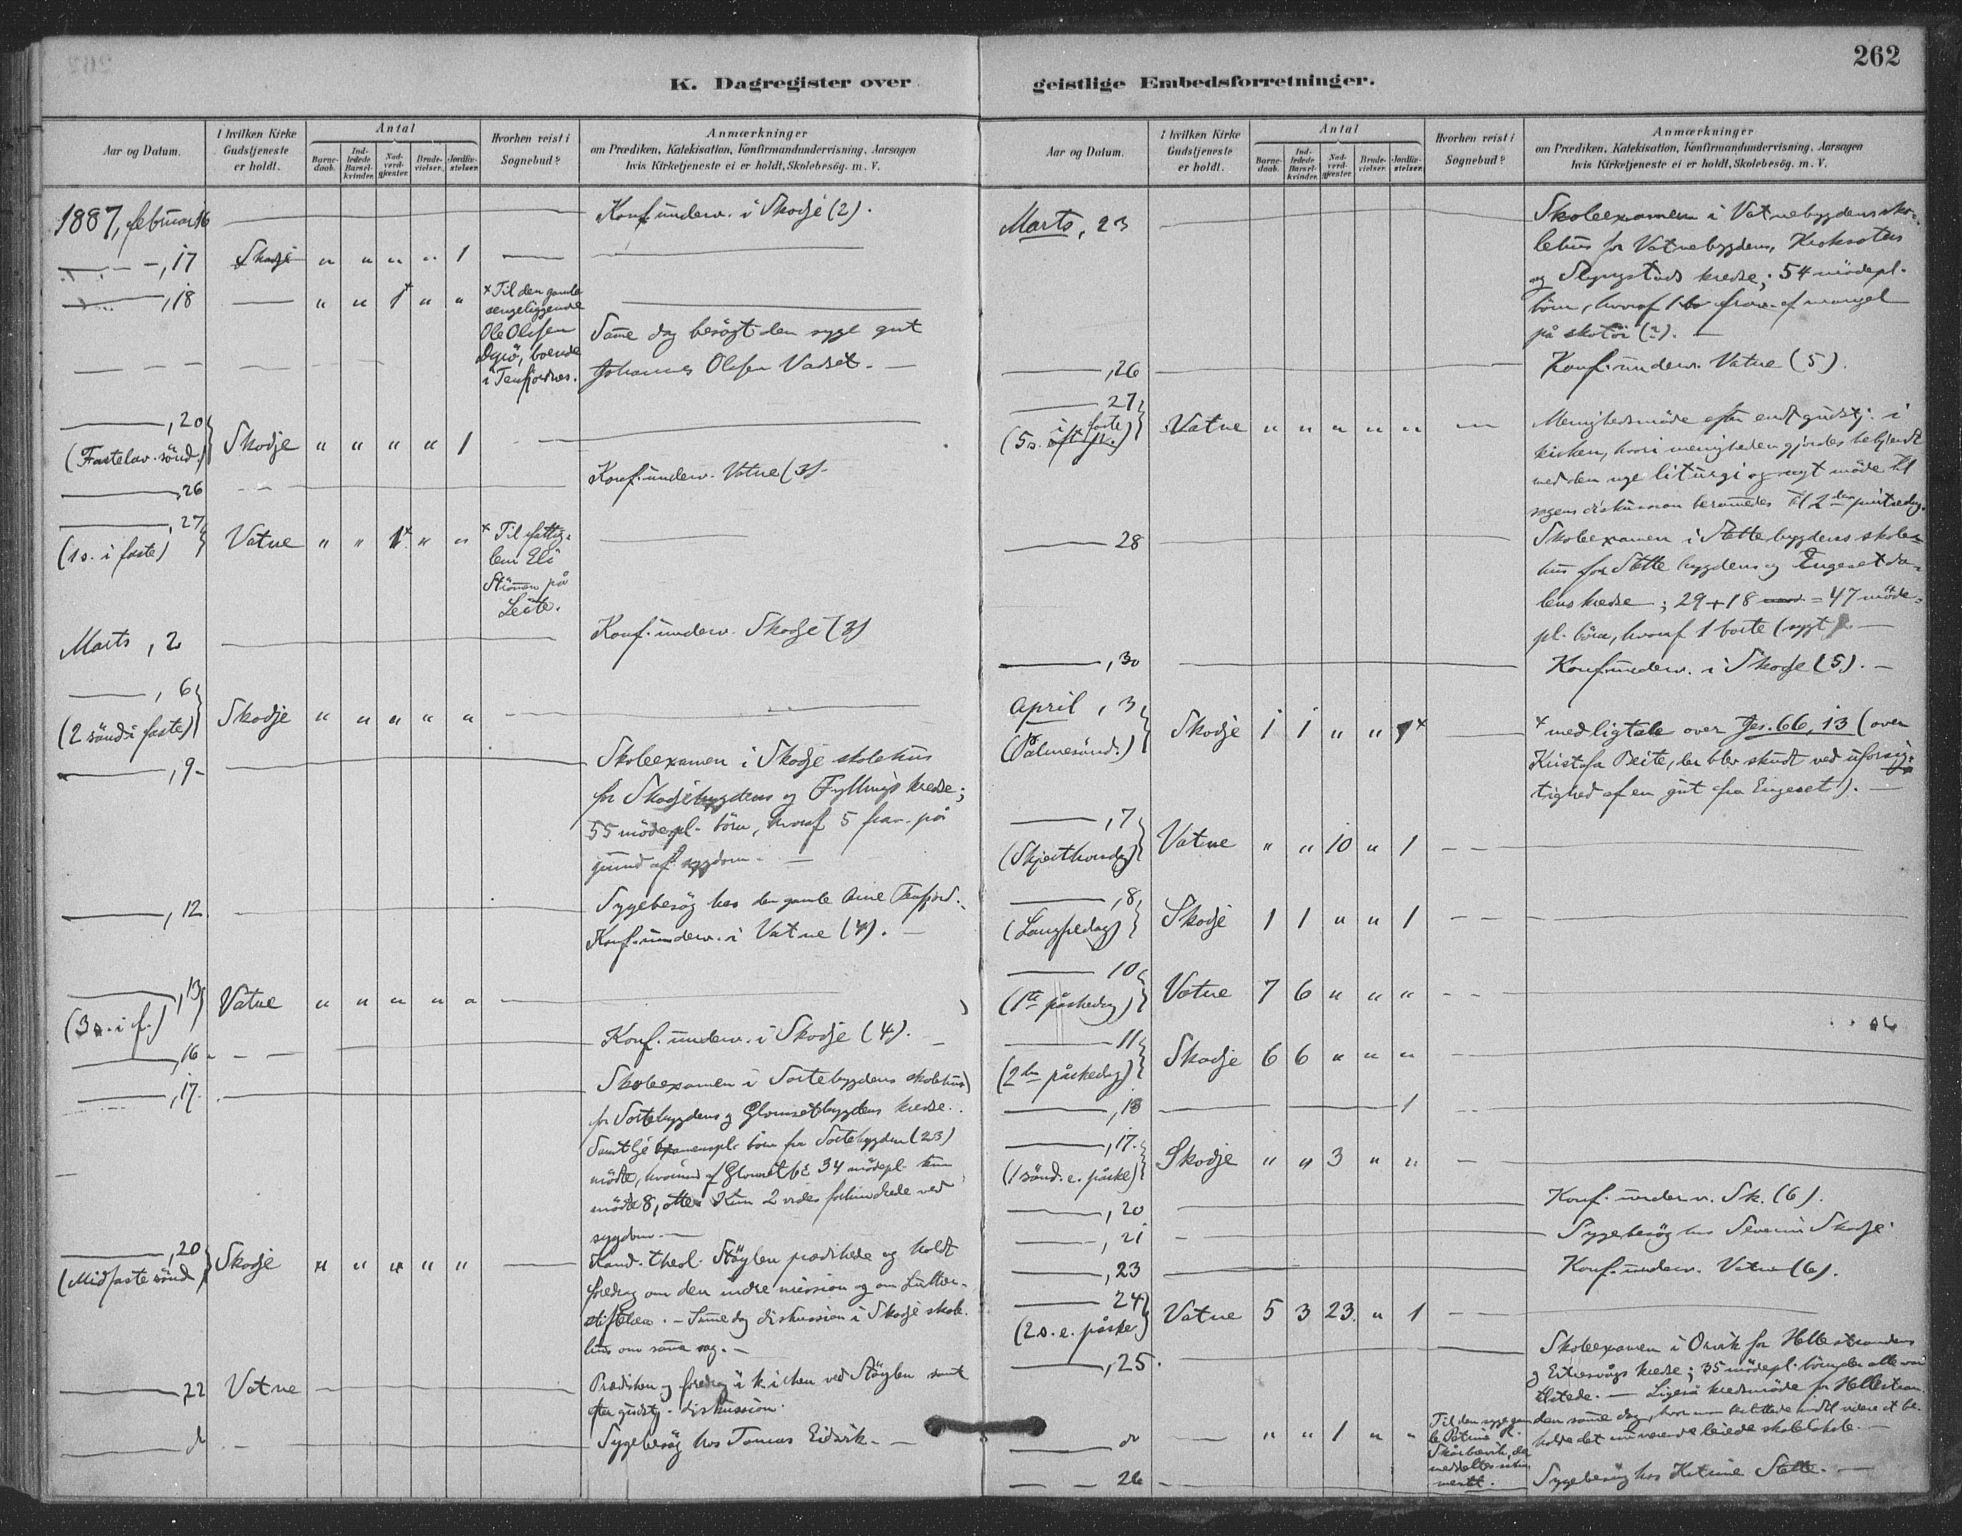 262
K. Dagregister over geistlige Embedsforretninger.
Aar og Datum.
I hvilken Kirke Gudstjeneste er holdt.
Antal
Barnedaab.
Indledede Barselkvinder.
Nadverdgjester.
Brudevielser.
Jordfæstelser.
Hvorhen reist i Sognebud?
Anmærkninger
om Prædiken, Katekisation, Konfirmandundervisning, Aarsagen
hvis Kirketjeneste ei er holdt, Skolebesøg. m. V.
1887, februar 16 Konf. underv. i Skodje (2).
—, 17 Skodje " " " " 1
—, 18 — " " 1+ " " + Til den gamle
sengeliggende
Ole Olsen
boende
i Tenfjordnes.
Same dag besøgt den syge gut
Johannes Olsen Vadset. —
—, 20
(Fastelav. sönd.) Skodje " " " " 1
—, 26 Konf. underv. Vatne (3).
—, 27
(1 s. i faste) Vatne " " 1+ " " + Til fattig-
lem Eli
på
Leite.
Marts, 2 Konf. underv. Skodje (3)
—, 6
(2 sönd i faste) Skodje " " " " "
—, 9 Skoleexamen i Skodje skolehus
for Skodjebygdens og Fyllings kredse;
55 mödepl. börn, hvoraf 5 frav. på
grund af sygdom. —
—, 12 Sygebesög hos den gamle Tenfjord.
Konf. underv. i Vatne (4). —
—, 13
(3 s. i f.) Vatne " " " " "
—, 16 Konf. underv. i Skodje (4). —
—, 17 Skoleexamen i Sortebygdens skolehus
for Sortebygdens og Glomsetbygdens kredse.
börn fra Sortebygden (23)
mödte, af 34 mödepl. kun
mödte 8, otte. Kun 2 vides forhindrede ved
sygdom. —
—, 20
(Midfaste sönd) Skodje " " " " "
Kand. theol. Stöylen prædikede og holdt
foredrag om den indre mission og om Luther-
stiftelsen. — Same dag diskussion i Skodje skole-
hus om same sag. —
—, 22 Vatne Prædiken og foredrag i kirken ved Stöylen samt
efter gudstj. diskussion.
— Sygebesög hos Tomas Eidsvik. —
Aar og Datum.
I hvilken Kirke Gudstjeneste er holdt.
Antal
Barnedaab.
Indledede Barselkvinder.
Nadverdgjester.
Brudevielser.
Jordfæstelser.
Hvorhen reist i Sognebud?
Anmærkninger
om Prædiken, Katekisation, Konfirmandundervisning, Aarsagen
hvis Kirketjeneste ei er holdt, Skolebesøg. m. V.
Marts, 23 Skoleexamen i Vatnebygdens sko-
lehus for Vatnebygdens,
og kredse; 54 mödepl.
börn, hvoraf 1 frav. af mangel
på skotöi (?). —
—, 26 Konf. underv. Vatne (5).
— 27
(5 s. i faste) Vatne " " " " "
Menighedsmöde efter endt gudstj. i
kirken, hvori menigheden gjordes bekjendt
med den nye liturgi og nyt möde til
sagens diskussion berammedes til 2den pintsedag.
— 28 Skoleexamen i Stettebygdens skole-
hus for Stettebygdens og Engesetda-
lens kredse; 29 + 18 = 47 möde-
pl. börn, hvoraf 1 borte (sygt). —
—, 30 Konf. underv. i Skodje (5). —
April, 3
(Palmesönd.) Skodje 1 1 " " 1+
+ med ligtale over Jes. 66, 13 (over
Kristofa Beite, der blev skudt ved uforsig-
tighed af en gut fra Engeset!). —
—, 7
(Skjærthorsdag) Vatne " " 10 " 1
—, 8
(Langfredag) Skodje 1 1 " " 1
— 10
(1ste påskedag) Vatne 7 6 " " "
— 11
(2den påskedag) Skodje 6 6 " " "
—, 13 1
—, 17
(1 sönd. e. påske) Skodje " " 3 " "
—, 20 Konf. underv. Sk. (6).
—, 21 Sygebesög hos Severin Skodje
—, 23 Konf. underv. Vatne (6).
— 24
(2 s. e. påske) Vatne 5 3 23 " 1
—, 25. Skoleexamen i for Hellestrandens
og kredse; 35 mödepl. börn, der alle var
tilstede. — Ligeså kredsmöde for Hellestran-
den same dag, hvor man besluttede indtil videre at be-
holde det nuværende leiede skolelokale. —
— " " 1 " " Til den syge gam-
le Petrine
der
meddeltes
26 Sygebesög hos Stette. —